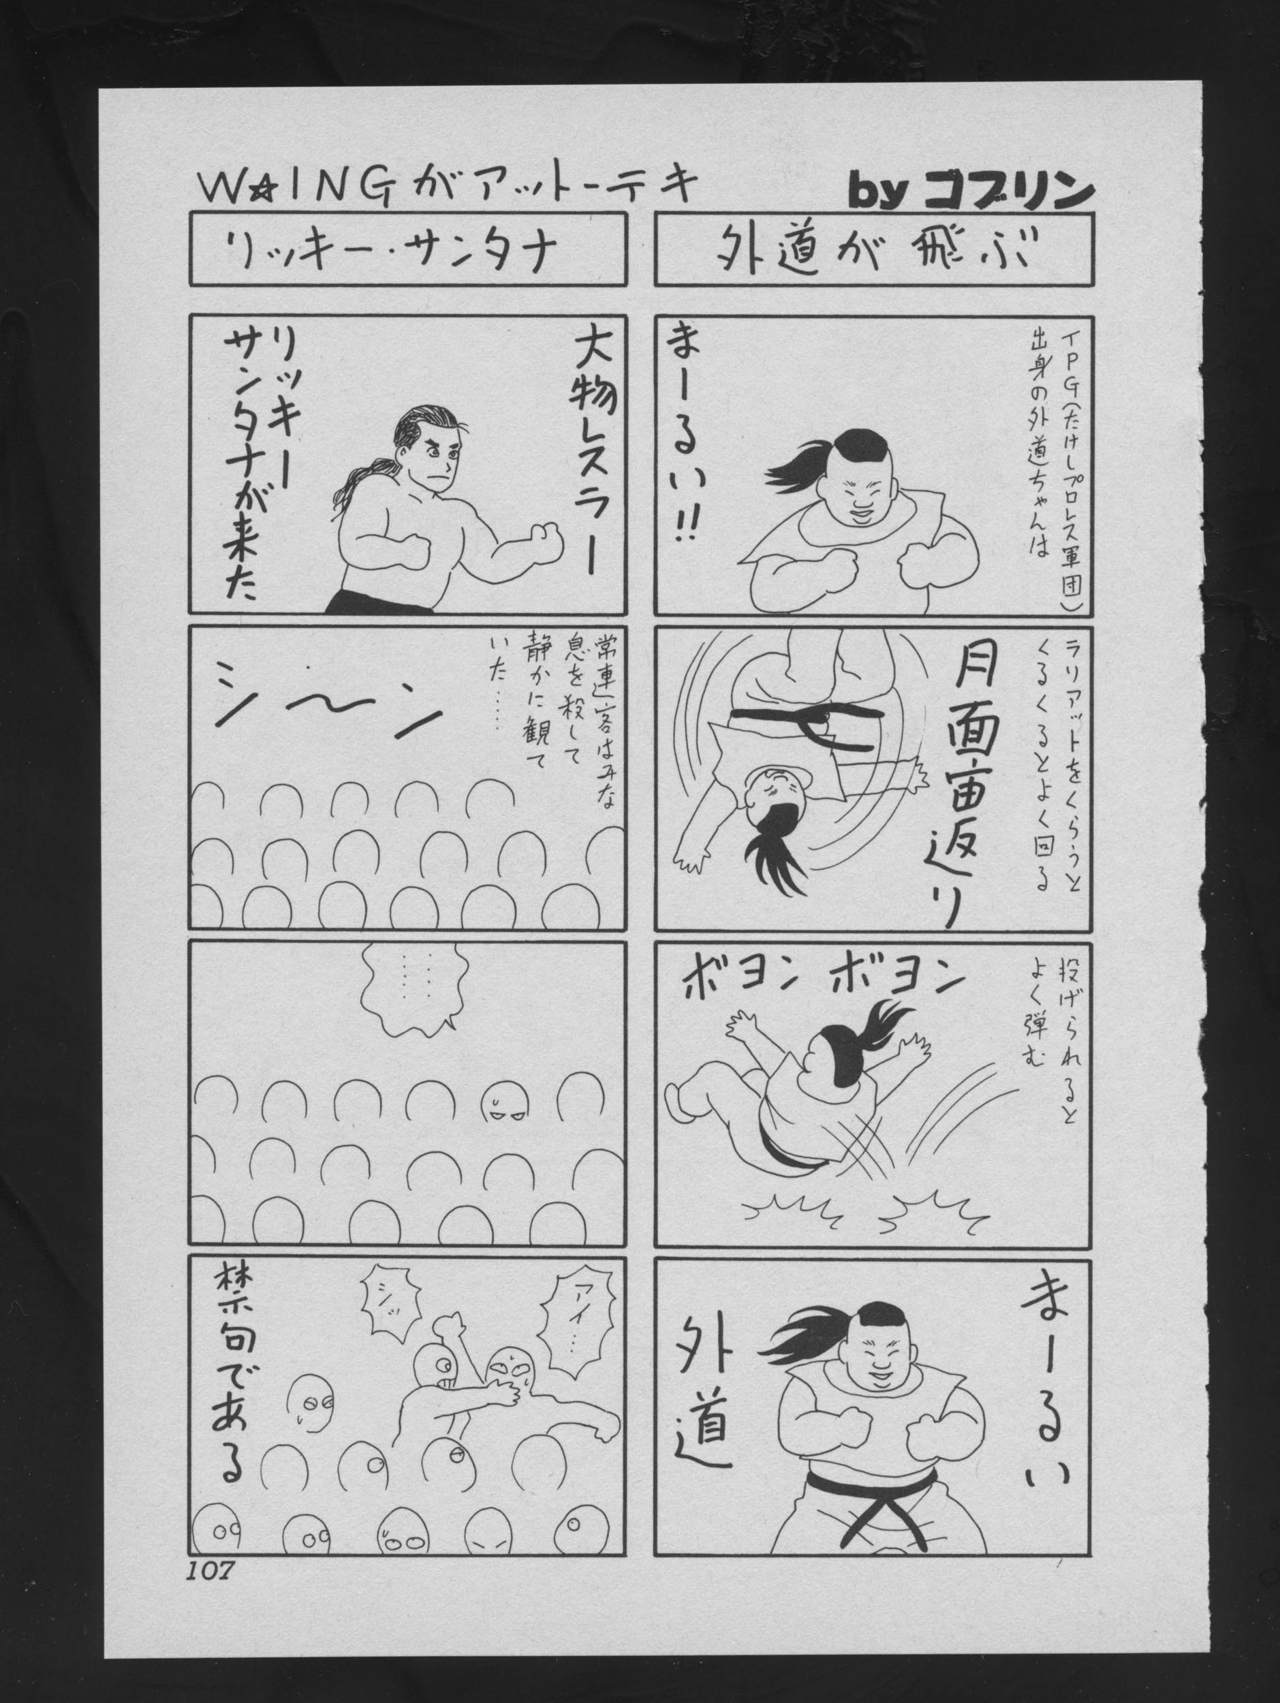 W☆INGがアットーテキ
by ゴブリン
外道が飛ぶ
TPG(たけしプロレス軍団)
出身の外道ちゃんは
まーるい!!
ラリアットをくらうと
くるくるとよく回る
月面宙返り
投げられると
よく弾む
ボヨンボヨン
まーるい
外道
リッキー・サンタナ
大物レスラー
リッキー
サンタナが来た
常連客はみな
息を殺して
静かに観て
いた……
シ〜ン
……
……
アイ…
シッ
禁句である
107